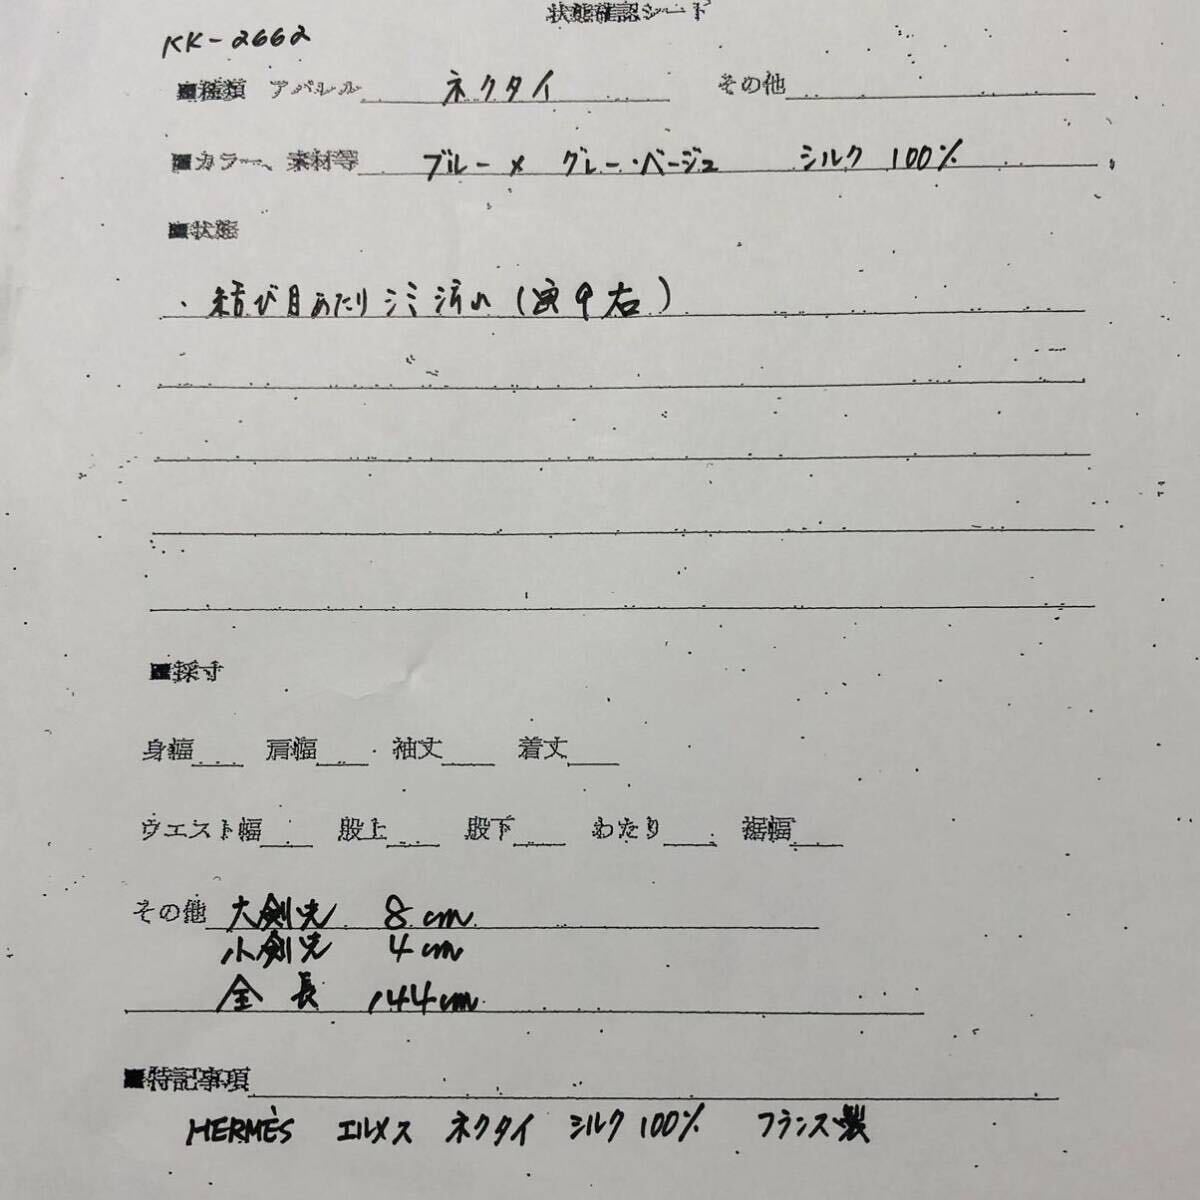 状態確認シート
KK-2662
■種類 アパレル ネクタイ その他
■カラー、素材等 ブルー × グレー・ベージュ シルク 100%
■状態
・結び目あたりシミ汚れ(
■採寸
身幅 肩幅 袖丈 着丈
ウエスト幅 股上 股下 わたり 裾幅
その他 大剣先 8cm
小剣先 4cm
全長 144cm
■特記事項
HERMÈS エルメス ネクタイ シルク100% フランス製